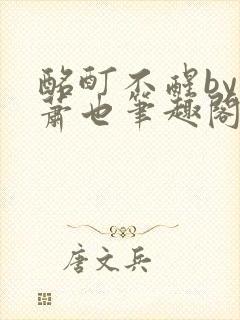 酩酊不醒by
萧也笔趣阁
唐文兵